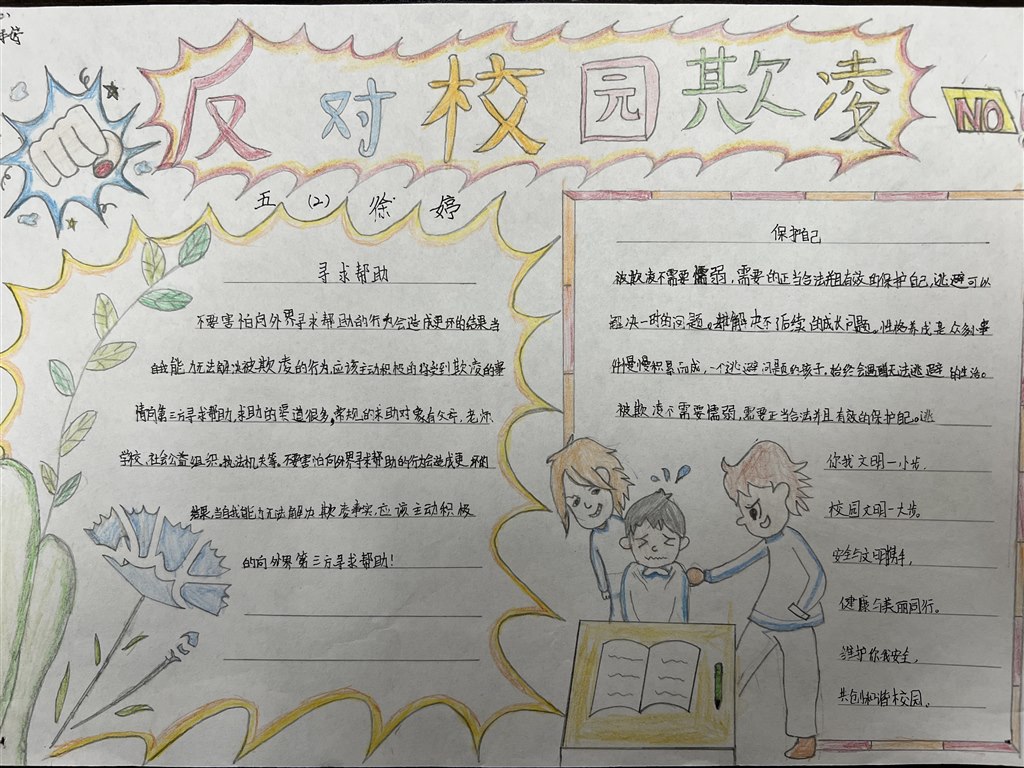 反对校园欺凌
NO
五 (2) 徐婷
寻求帮助
不要害怕向外界寻求帮助的行为会造成更坏的结果当
自我能力无法解决被欺凌的行为,应该主动积极的将受到欺凌的事
情向第三方寻求帮助,求助的渠道很多,常规的求助对象有父母,老师,
学校,社会公益组织,执法机关等。不要害怕向外界寻求帮助的行为会造成更坏的
结果,当自我能力无法解为欺凌事实,应该主动积极
的向外界第三方寻求帮助!
保护自己
被欺凌不需要懦弱,需要的正当合法并且有效的保护自己,逃避可以
解决一时的问题。难解决不后续的成长问题。性格养成是众多小事
件慢慢积累而成,一个逃避问题的孩子,始终会面临无法逃避的生活。
被欺凌不需要懦弱,需要正当合法并且有效的保护自己。逃
你我文明一小步,
校园文明一大步。
安全与文明携手,
健康与美丽同行。
维护你我安全,
共创和谐校园。